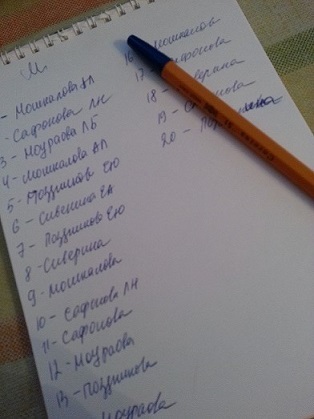 М
- Мошкалова АЛ
Сафонова ЛН
3 - Моураова ЛБ
4 - Мошкалова АЛ
5 - Поздникова ЕЮ
6 - Сиверина ЕА
7 - Поздникова ЕЮ
8 - Сиверина
9 - Мошкалова
10 - Сафонова ЛН
11 - Сафонова
12 - Моураова
13 - Поздникова
Моураова
16 - Мошкалова
17 - Сафонова
18 -
19 - Сафонова
20 -